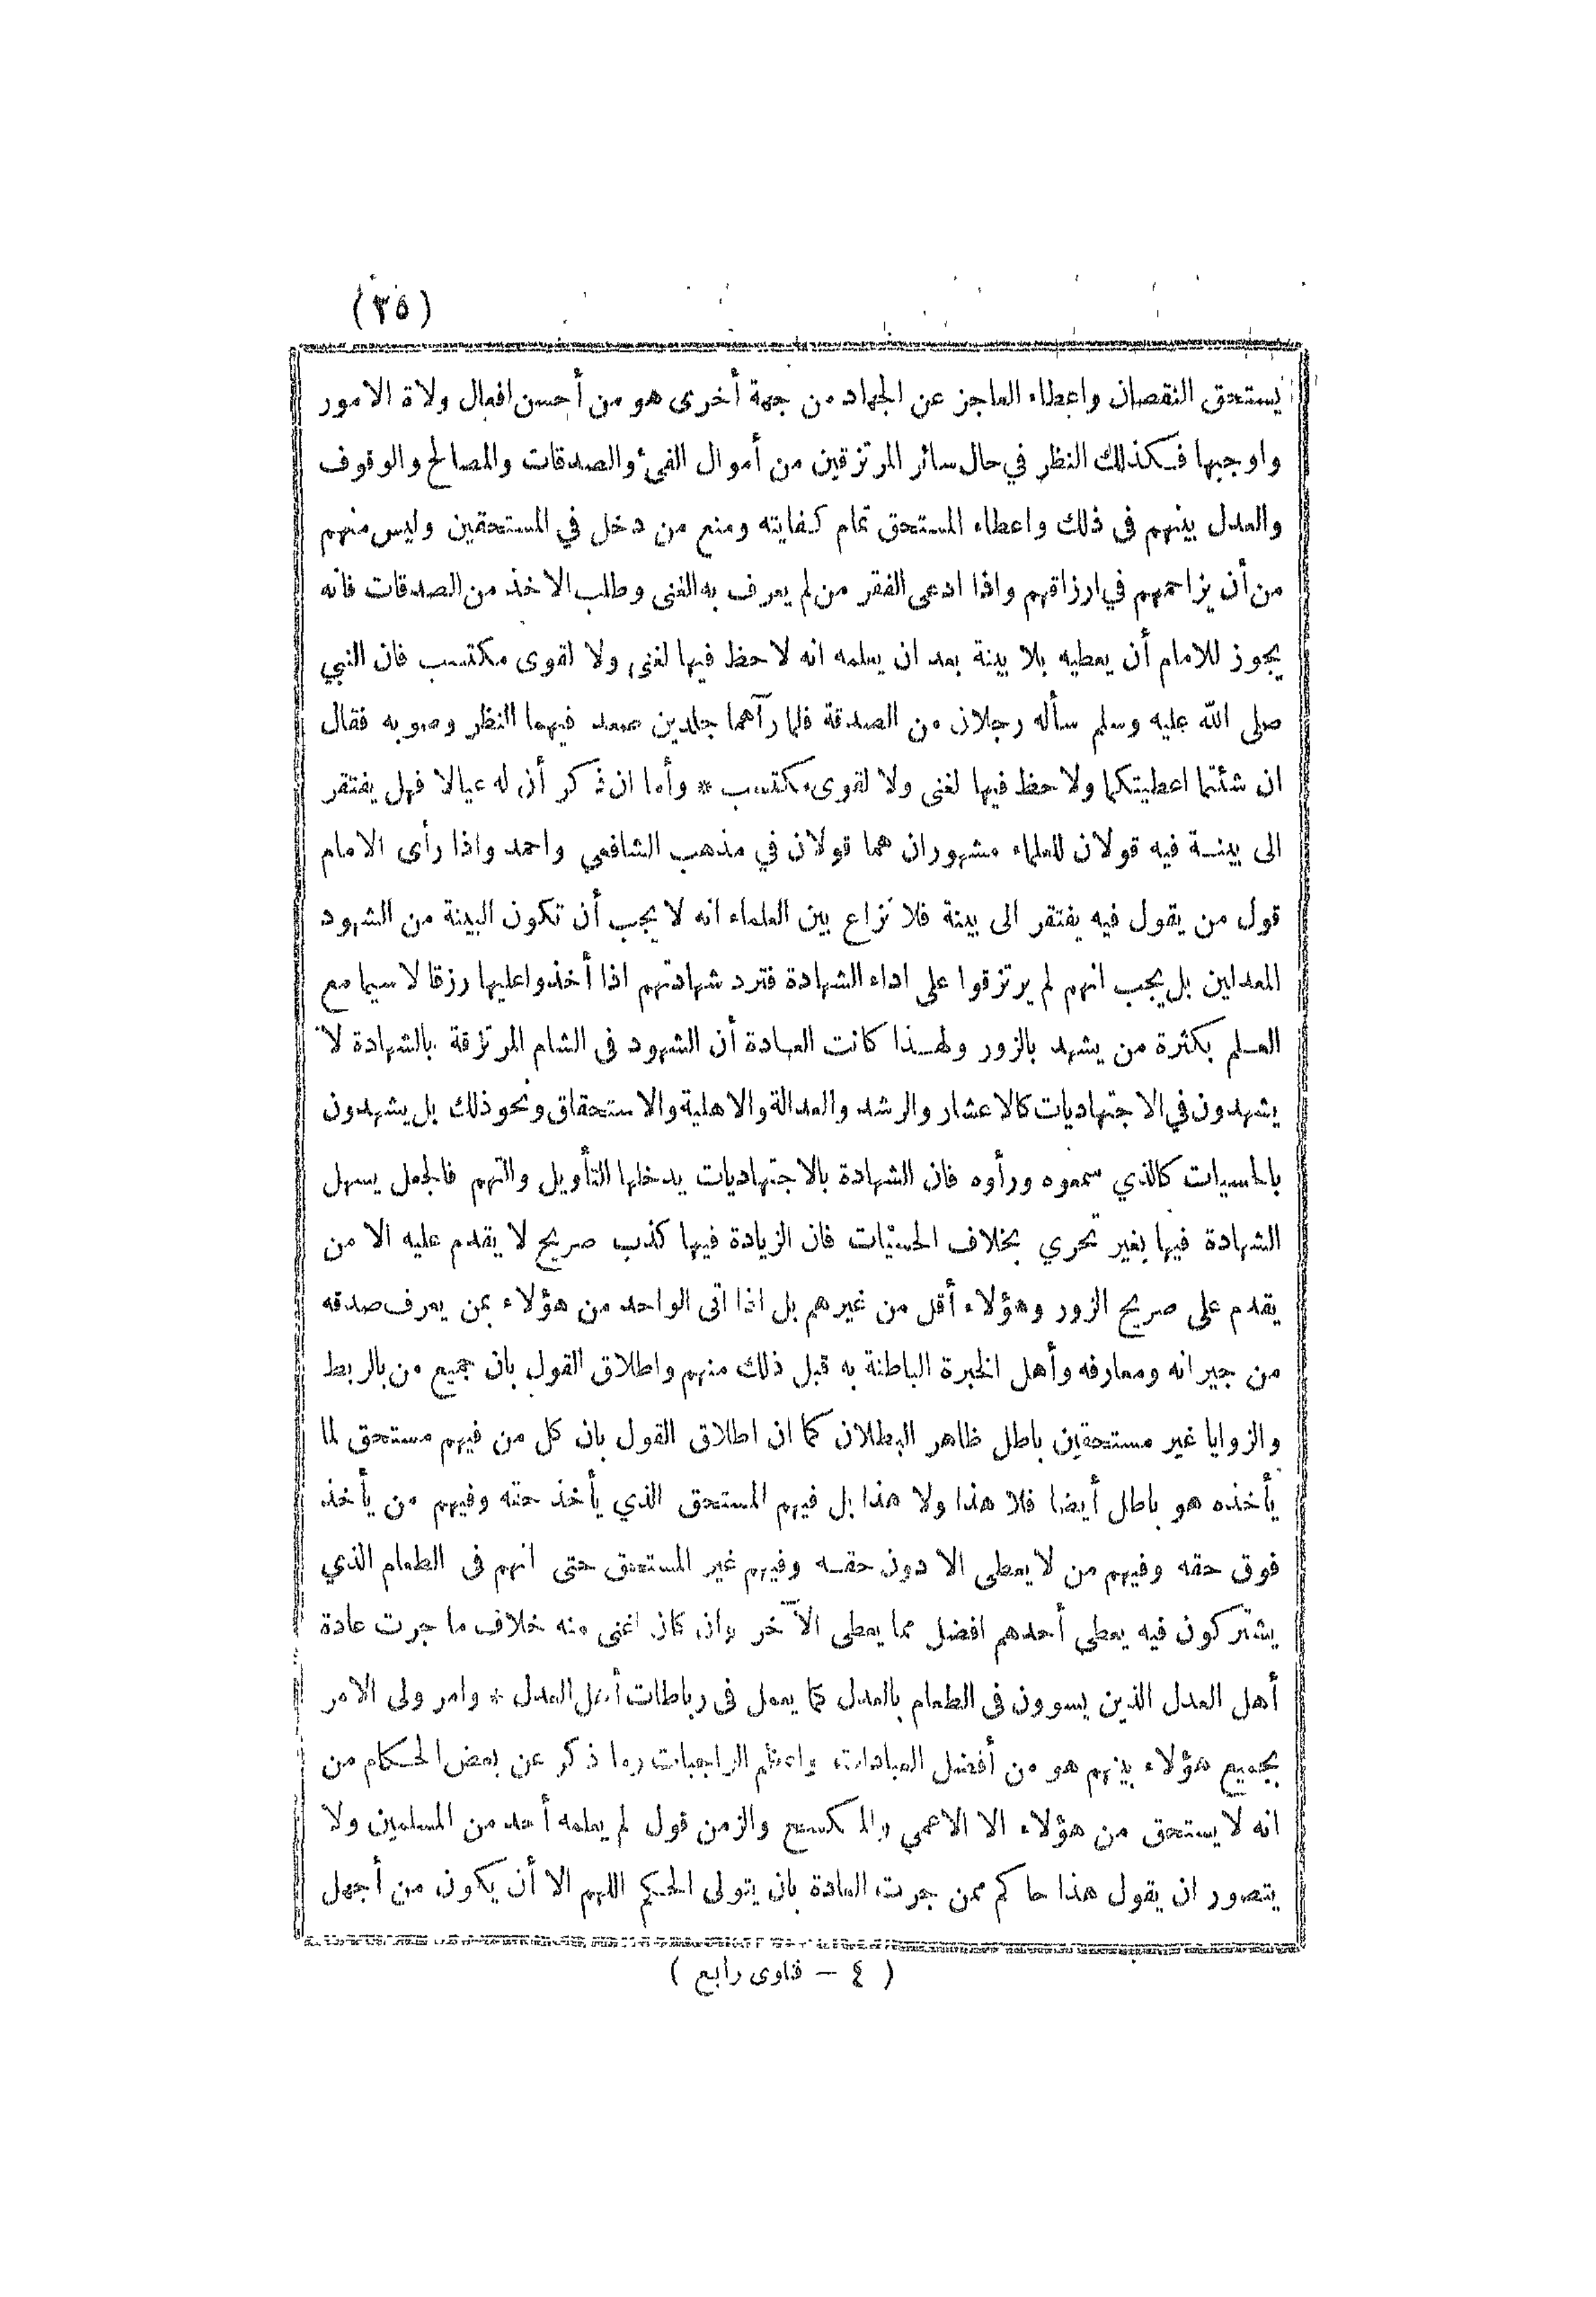 (٢٥)
يستحق النقصان واعطاء العاجز عن الجهاد من جهة أخرى هو من أحسن افعال ولاة الامور
واوجبها فكذلك النظر في حال سائر المرتزقين من أموال الفيء والصدقات والمصالح والوقوف
والعدل بينهم فى ذلك واعطاء المستحق تمام كفايته ومنع من دخل في المستحقين وليس منهم
من أن يزاحمهم في ارزاقهم واذا ادعى الفقر من لم يعرف به الغنى وطلب الاخذ من الصدقات فانه
يجوز للامام أن يعطيه بلا بينة بعد ان يعلمه انه لا حظ فيها لغنى ولا لقوى مكتسب فان النبي
صلى الله عليه وسلم سأله رجلان من الصدقة فلما رآهما جلدين صعد فيهما النظر وصوبه فقال
ان شئتما اعطيتكما ولا حظ فيها لغنى ولا لقوى مكتسب * وأما ان ذكر أن له عيالا فهل يفتقر
الى بينة فيه قولان للعلماء مشهوران هما قولان في مذهب الشافعي واحمد واذا رأى الامام
قول من يقول فيه يفتقر الى بينة فلا نزاع بين العلماء انه لا يجب أن تكون البينة من الشهود
المعدلين بل يجب انهم لم يرتزقوا على اداء الشهادة فترد شهادتهم اذا أخذوا عليها رزقا لا سيما مع
العلم بكثرة من يشهد بالزور ولهذا كانت العادة أن الشهود فى الشام المرتزقة بالشهادة لا
يشهدون في الاجتهاديات كالاعشار والرشد والعدالة والاهلية والاستحقاق ونحو ذلك بل يشهدون
بالحسيات كالذي سمعوه ورأوه فان الشهادة بالاجتهاديات يدخلها التأويل والتهم فالجعل يسهل
الشهادة فيها بغير تحري بخلاف الحسيّات فان الزيادة فيها كذب صريح لا يقدم عليه الا من
يقدم على صريح الزور وهؤلاء أقل من غيرهم بل اذا اتى الواحد من هؤلاء بمن يعرف صدقه
من جيرانه ومعارفه وأهل الخبرة الباطنة به قبل ذلك منهم واطلاق القول بان جميع من بالربط
والزوايا غير مستحقين باطل ظاهر البطلان كما ان اطلاق القول بان كل من فيهم مستحق لما
يأخذه هو باطل أيضا فلا هذا ولا هذا بل فيهم المستحق الذي يأخذ حقه وفيهم من يأخذ
فوق حقه وفيهم من لا يعطى الا دون حقه وفيهم غير المستحق حتى انهم فى الطعام الذي
يشتركون فيه يعطى أحدهم افضل مما يعطى الآخر وان كان اغنى منه خلاف ما جرت عادة
أهل العدل الذين يسوون فى الطعام بالعدل كما يعمل فى رباطات أهل العدل * وامر ولى الامر
بجميع هؤلاء بينهم هو من أفضل العبادات واعظم الواجبات وما ذكر عن بعض الحكام من
انه لا يستحق من هؤلاء الا الاعمى والمكسح والزمن قول لم يعلمه أحد من المسلمين ولا
يتصور ان يقول هذا حاكم ممن جرت العادة بان يتولى الحكم اللهم الا أن يكون من أجهل
( ٤ – فتاوى رابع )